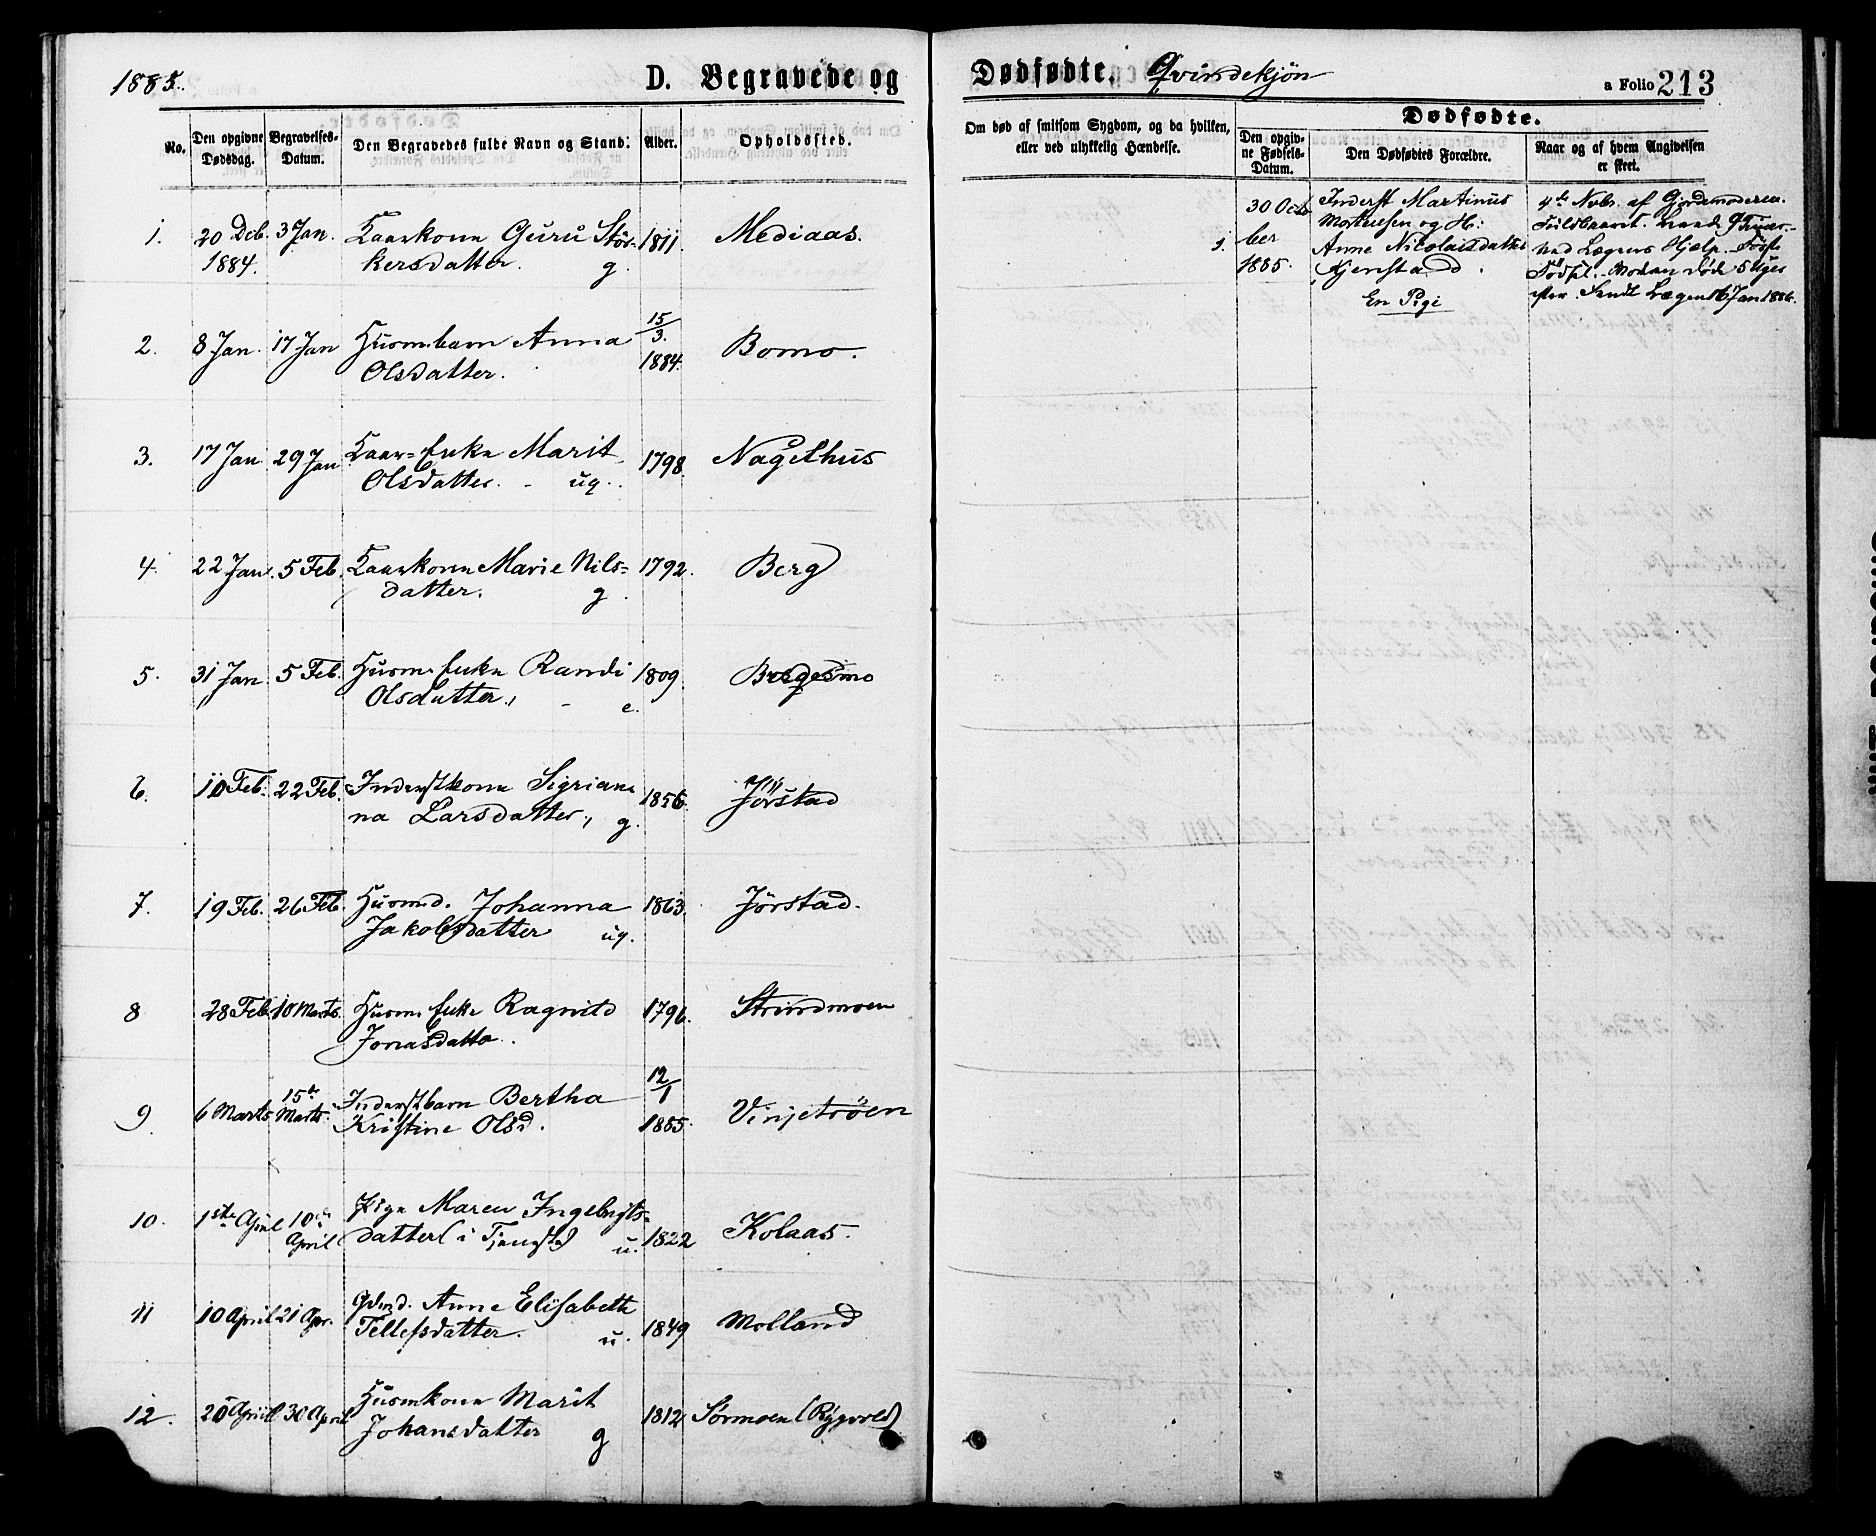 1885.
D. Begravede og
No.
Den opgivne Dødsdag.
Begravelses-Datum.
Den Begravedes fulde Navn og Stand.
Alder.
Opholdssted.
1. 20 Deb. 3 Jan. Kaarkone Guru Stör- 1811. Mediaas.
1884. kersdatter. g.
15/3.
2. 8 Jan. 17 Jan Husm.barn Anna 1884. Bomo.
Olsdatter.
3. 17 Jan 29 Jan Kaar-Enke Marit 1798. Nagelhus
Olsdatter. - ug.
4. 22 Jan. 5 Feb. Kaarkone Marie Nils- 1792. Berg
datter. g.
5. 31 Jan 5 Feb. Husm. Enke Randi 1809. Bregesmo
Olsdatter., - e.
6. 10 Feb. 22 Feb. Inderstkone Sigrian- 1856. Jørstad
na Larsdatter, g.
7. 19 Feb. 26 Feb. Husmd. Johanna 1863. Jörstad.
Jakobsdatter ug.
8 28 Feb. 10 Marts. Husm. Enke Ragnild 1796. Strindmoen
Jonasdatter.
12/1
9. 6 Marts 15de Marts. Inderstbarn Bertha
Kristine Olsd. 1885. Vinjetröen
10. 1ste April 10de April Pige Maren Ingebrigts-
datter (i Tjeneste) u. 1822 Kolaas.
11 10 April 21 Apr. Gdmd. Anne Elisabeth
Tellefsdatter. u. 1849 Molland
12. 20 April 30 April Husmkone Marit
Johansdatter g 1812 Sørmoen (Rygvold)
Dødfødte. Qvindekjön
a Folio 213
Om død af smitsom Sygdom, og da hvilken,
eller ved ulykkelig Hændelse.
Dødfødte.
Den opgivne Fødsels-Datum.
Den Dødfødtes Forældre.
Naar og af hvem Angivelsen er skeet.
1.
30 Octo
ber
1885.
Inderst Martinus
og H:
Anne Nicolaisdatter
En Pige
4de Nvbr. af Gjordemoderen.
Fuldbaaret.
ved Lægens Hjælp. Første
Fødsel. Moderen døde 5 Uger
efter. Sendt Lægen 16 Jan 1886.